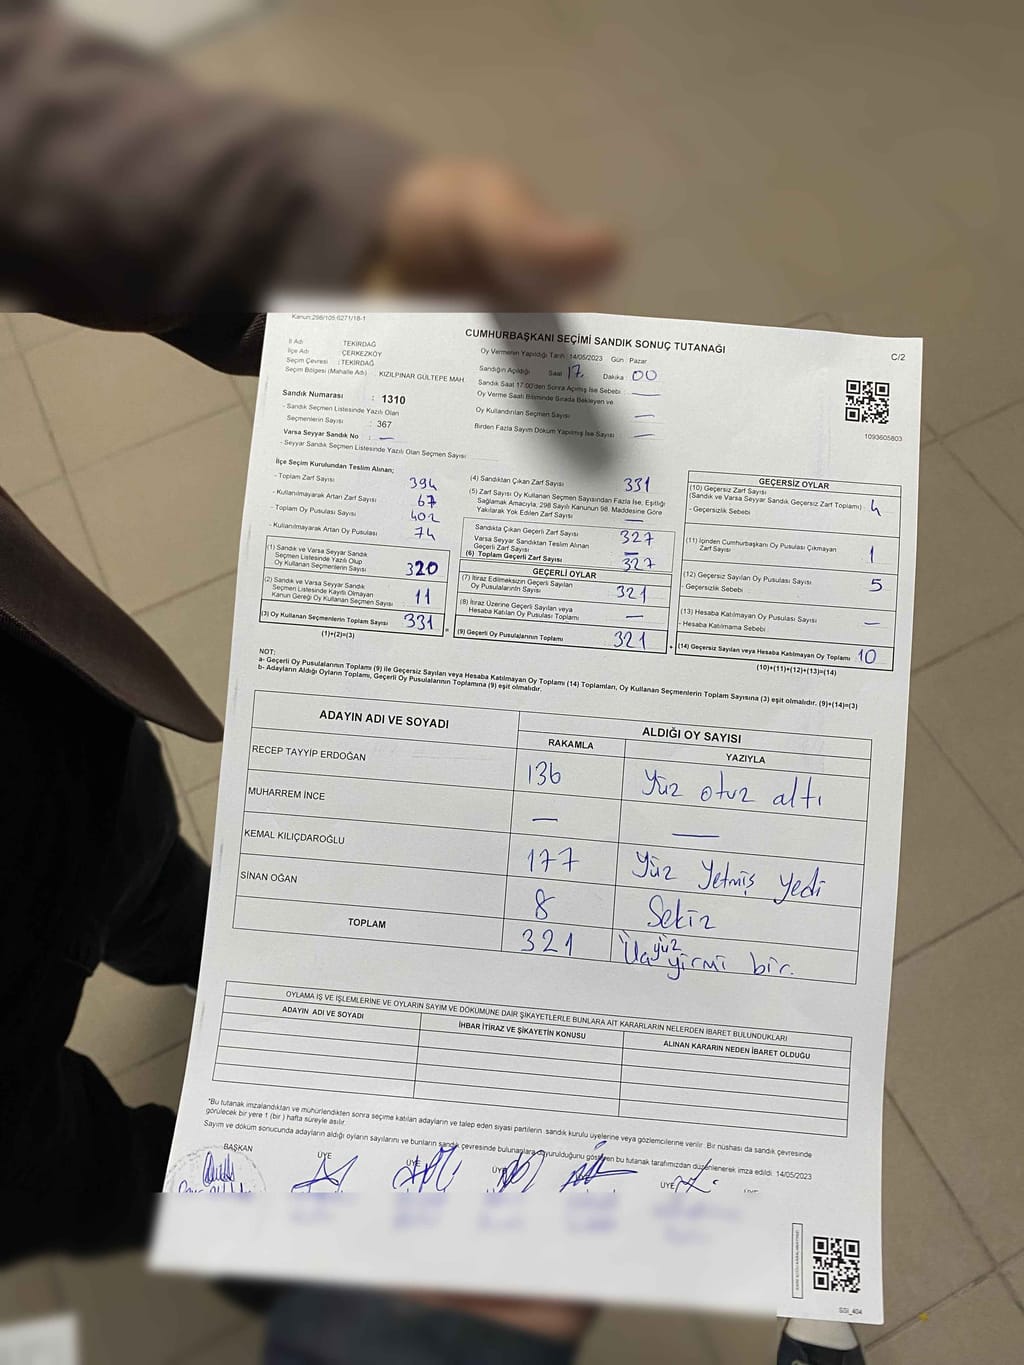 Kanun:298/105,6271/18-1
CUMHURBAŞKANI SEÇİMİ SANDIK SONUÇ TUTANAĞI
C/2
İl Adı : TEKİRDAĞ
İlçe Adı : ÇERKEZKÖY
Seçim Çevresi : TEKİRDAĞ
Seçim Bölgesi (Mahalle Adı) : KIZILPINAR GÜLTEPE MAH.
Sandık Numarası : 1310
- Sandık Seçmen Listesinde Yazılı Olan
Seçmenlerin Sayısı : 367
Varsa Seyyar Sandık No : —
- Seyyar Sandık Seçmen Listesinde Yazılı Olan Seçmen Sayısı
Oy Vermenin Yapıldığı Tarih :14/05/2023 Gün : Pazar
Sandığın Açıldığı Saat 17 Dakika : 00
Sandık Saat 17:00'den Sonra Açılmış İse Sebebi —
Oy Verme Saati Bitiminde Sırada Bekleyen ve
Oy Kullandırılan Seçmen Sayısı —
Birden Fazla Sayım Döküm Yapılmış İse Sayısı —
1093605803
İlçe Seçim Kurulundan Teslim Alınan;
- Toplam Zarf Sayısı 394
- Kullanılmayarak Artan Zarf Sayısı 67
- Toplam Oy Pusulası Sayısı 402
- Kullanılmayarak Artan Oy Pusulası 74
(1) Sandık ve Varsa Seyyar Sandık
Seçmen Listesinde Yazılı Olup
Oy Kullanan Seçmenlerin Sayısı 320
(2) Sandık ve Varsa Seyyar Sandık
Seçmen Listesinde Kayıtlı Olmayan
Kanun Gereği Oy Kullanan Seçmen Sayısı 11
(3) Oy Kullanan Seçmenlerin Toplam Sayısı 331
(1)+(2)=(3)
(4) Sandıktan Çıkan Zarf Sayısı 331
(5) Zarf Sayısı Oy Kullanan Seçmen Sayısından Fazla İse, Eşitliği
Sağlamak Amacıyla, 298 Sayılı Kanunun 98. Maddesine Göre
Yakılarak Yok Edilen Zarf Sayısı —
Sandıkta Çıkan Geçerli Zarf Sayısı 327
Varsa Seyyar Sandıktan Teslim Alınan
Geçerli Zarf Sayısı —
(6) Toplam Geçerli Zarf Sayısı 327
GEÇERLİ OYLAR
(7) İtiraz Edilmeksizin Geçerli Sayılan
Oy Pusulalarının Sayısı 321
(8) İtiraz Üzerine Geçerli Sayılan veya
Hesaba Katılan Oy Pusulası Toplamı —
(9) Geçerli Oy Pusulalarının Toplamı 321
GEÇERSİZ OYLAR
(10) Geçersiz Zarf Sayısı
(Sandık ve Varsa Seyyar Sandık Geçersiz Zarf Toplamı) 4
- Geçersizlik Sebebi
(11) İçinden Cumhurbaşkanı Oy Pusulası Çıkmayan
Zarf Sayısı 1
(12) Geçersiz Sayılan Oy Pusulası Sayısı 5
- Geçersizlik Sebebi
(13) Hesaba Katılmayan Oy Pusulası Sayısı —
- Hesaba Katılmama Sebebi
(14) Geçersiz Sayılan veya Hesaba Katılmayan Oy Toplamı 10
(10)+(11)+(12)+(13)=(14)
NOT:
a- Geçerli Oy Pusulalarının Toplamı (9) ile Geçersiz Sayılan veya Hesaba Katılmayan Oy Toplamı (14) Toplamları, Oy Kullanan Seçmenlerin Toplam Sayısına (3) eşit olmalıdır. (9)+(14)=(3)
b- Adayların Aldığı Oyların Toplamı, Geçerli Oy Pusulalarının Toplamına (9) eşit olmalıdır.
ADAYIN ADI VE SOYADI ALDIĞI OY SAYISI
RAKAMLA YAZIYLA
RECEP TAYYİP ERDOĞAN 136 Yüz otuz altı
MUHARREM İNCE — —
KEMAL KILIÇDAROĞLU 177 Yüz Yetmiş yedi
SİNAN OĞAN 8 Sekiz
TOPLAM 321 Üç yüz yirmi bir.
OYLAMA İŞ VE İŞLEMLERİNE VE OYLARIN SAYIM VE DÖKÜMÜNE DAİR ŞİKAYETLERLE BUNLARA AİT KARARLARIN NELERDEN İBARET BULUNDUKLARI
ADAYIN ADI VE SOYADI İHBAR İTİRAZ VE ŞİKAYETİN KONUSU ALINAN KARARIN NEDEN İBARET OLDUĞU
"Bu tutanak imzalandıktan ve mühürlendikten sonra seçime katılan adayların ve talep eden siyasi partilerin sandık kurulu üyelerine veya gözlemcilerine verilir. Bir nüshası da sandık çevresinde
görülecek bir yere 1 (bir ) hafta süreyle asılır.
Sayım ve döküm sonucunda adayların aldığı oyların sayılarını ve bunların sandık çevresinde bulunanlara duyurulduğunu gösteren bu tutanak tarafımızdan düzenlenerek imza edildi. 14/05/2023
BAŞKAN ÜYE ÜYE ÜYE ÜYE
SSI_404